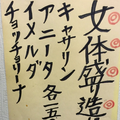 女体盛造
キャサリン
アニータ 各一五
イメルダ
チョリチョリーナ